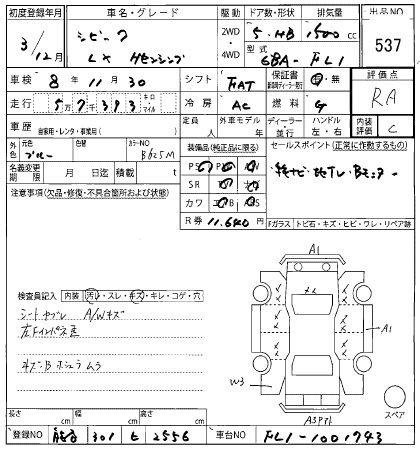 初度登録年月 車名・グレード 駆動 ドア数・形状 排気量 出品NO
3/12月 シビック 2WD 5・HB 1500cc 537
LX Hセンシング 4WD 型式 6BA-FL1
車検 8年11月30 シフト FAT 保証書 有・無 評価点
走行 57393 キロ・マイル 冷房 AC 燃料 G RA
車歴 自家用・レンタ・事業用( ) 定員 人 外車モデル 年 ディーラー 並行 ハンドル 左・右 内装評価 C
外色 元色 ブルー 色替 カラーNO B625M 装備品(純正品に限る) セールスポイント(正常に作動するもの)
名義変更期限 月 日迄 積載 t PS PW ナビ・地デジ・Bモニター
注意事項(欠品・修復・不具合箇所および状態) SR
カワ
R券 11,640 Fガラス トビ石・キズ・ヒビ・ワレ・リペア跡
A1
検査員記入 内装 汚レ・スレ・キズ・キレ・コゲ・穴
シートヨゴレ A/Wキズ
左Fインパネ
A1
キズ・B ムラ
W3
スペア
A3
長さ cm 幅 cm 高さ cm
登録NO 301 せ 2556 車台NO FL1-1001743